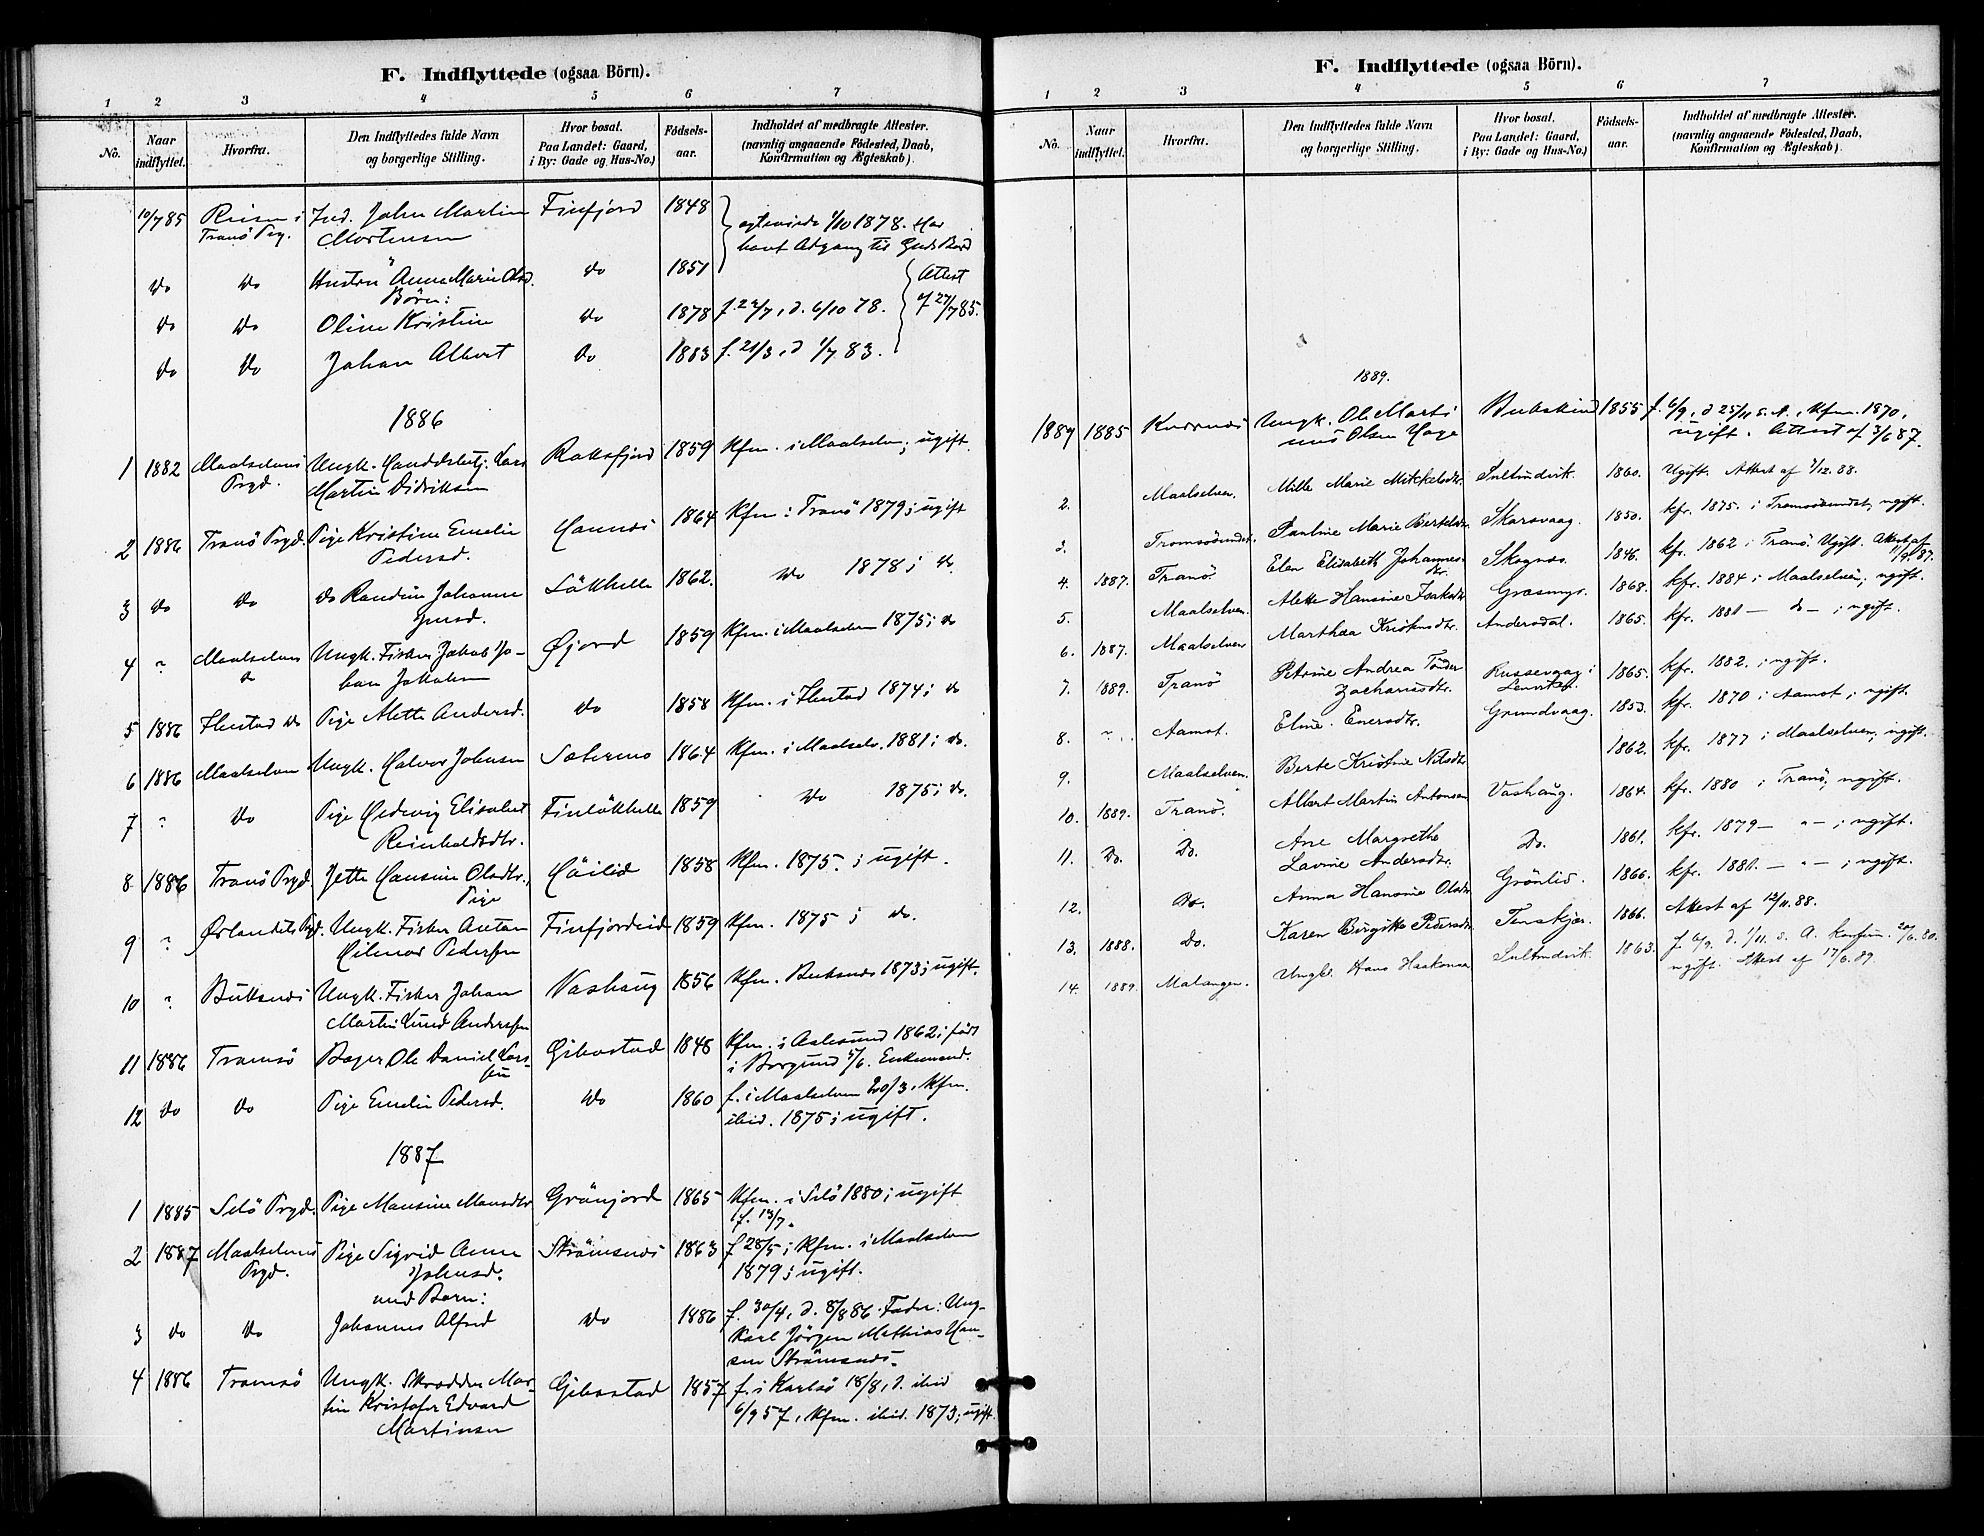 F. Indflyttede (ogsaa Börn).
1 2 3 4 5 6 7
No. Naar indflyttet. Hvorfra. Den Indflyttedes fulde Navn og borgerlige Stilling. Hvor bosat. Paa Landet: Gaard, i By: Gade og Hus-No.) Födsels-aar. Indholdet af medbragte Attester. (navnlig angaaende Födested, Daab, Konfirmation og Ægteskab).
10/7 85 i Ind. Johan Martin Finfjord 1848
Tranö Prg. Mortensen 1/10 1878. Har
havt Adgang til Guds Bord
do do Hustru Anna Marie Olsd. do 1851 Attest
Börn: af 27/7 85.
do do Oline Kristine do 1878 f. 22/7, d. 6/10 78.
do do Johan Albert do 1883 f. 21/3, d 1/7 83.
1886
1 1882 Maalselvens Ungk. Lars Rossfjord 1859 Kfm. i Maalselv.; ugift.
Prgd. Martin Didriksen
2 1886 Tranö Prgd. Pige Kristine Emelie 1864 Kfm i Tranö 1879; ugift
Pedersd.
3 do do do Johanne Lökhelle 1862. do 1878; do.
4 " Maalselvens Ungk. Fisker Jakob Jo- Øjord 1859 Kfm. i Maalselven 1875; do
do han Jakobsen
5 1886 Ibestad do Pige Alette Andersd. do 1858 Kfm. i Ibestad 1874; do
6 1886 Maalselven Ungk. Halvor Johnsen 1864 Kfm. i Maalselv. 1881; do.
7 " do Pige Hedvig Elisabet Finlökhelle 1859 do 1875; do.
Reinholdsdtr.
8 1886 Tranö Prgd. Jette Hansine Olsdtr., 1858 Kfm. 1875; ugift.
Pige
9 " Ørlandets Prgd. Ungk. Fisker Anton Finfjordeid 1859 Kfm. 1875; do.
Hilmar Pedersen
10 " Buksnes Ungk. Fisker Johan Vashaug 1856 Kfm. Buksnes 1873; ugift.
Martin Lund Andersen
11 1886 Tromsö Bager Ole Daniel Lars- Gibostad 1848 Kfm. i Aalesund 1862; född
sen i Borgund 5/6. Enkemand.
12 do do Pige Emelie Pedersd. do 1860 f. i Maalselven 20/3, Kfm.
ibid. 1875; ugift.
1887
1 1885 Selö Prgd. Pige Mansine Monsdtr Grönjord 1865 Kfm. i Selö 1880; ugift
f. 13/7.
2 1887 Maalselvens Pige Sigrid Anna Strömsnes 1863 f 28/5; Kfm. i Maalselven
Prgd. Johnsd. 1879; ugift.
med Barn:
3 do do Johannes Alfred do 1886 f. 30/4, d. 8/8 86. Fader: Ung-
karl Jörgen Mathias Han-
sen Strömsnes.
4 1886 Tromsö Ungk. Skrædder Mar- Gibostad 1857 f. i Karlsö 18/8, d. ibid
tin Kristofer Edvard 6/9 57, Kfm. ibid. 1873; ugift.
Martinsen
F. Indflyttede (ogsaa Börn).
1 2 3 4 5 6 7
No. Naar indflyttet. Hvorfra. Den Indflyttedes fulde Navn og borgerlige Stilling. Hvor bosat. Paa Landet: Gaard, i By: Gade og Hus-No.) Födsels-aar. Indholdet af medbragte Attester. (navnlig angaaende Födested, Daab, Konfirmation og Ægteskab).
1889.
1889 1885 Ungk. Ole Marti- Bukskind 1855 f. 6/9, d 25/11 s. A., Kfm. 1870,
nus Olsen Hage ugift. Attest af 3/6 87.
2. Maalselven. Mille Marie Mikkelsdtr. Sultindvik. 1860. Ugift. Attest af 7/12. 88.
3. Tromsösundet. Pauline Marie Bertelsdtr. Skarsvaag. 1850. kfr. 1875. i Tromsösundet, ugift.
4. 1887. Tranö. Elen Elisabeth Johannes- Skognes. 1846. kfr. 1862 i Tranö. Ugift. Attest af
dtr. 11/9 87.
5. Maalselven. Alette Hansine Isaksdtr. Græsmyr. 1868. kfr. 1884 i Maalselven, ugift.
6. 1887. Maalselven Marthea Kristinsdtr. Andersdal. 1865. kfr. 1881 – do – ; ugift.
7. 1889. Tranö Petrine Andrea Tönder Russevaag i 1865. kfr. 1882. ; ugift.
Zachariasdtr. Lenvik
8. " Aamot. Eline Enersdtr. Grundvaag. 1853. kfr. 1870 i Aamot; ugift.
9. Maalselven. Berte Kristine Nilsdtr 1862. kfr. 1877 i Maalselven, ugift.
10. 1889. Tranö. Albert Martin Antonsen Vashaug. 1864. kfr. 1880 i Tranö, ugift.
11. Do. Do. Ane Margrethe Do. 1861. kfr. 1879 – " – ; ugift.
Lavine Andersdtr.
12. Do. Anna Hansine Olsdtr Grönlid. 1866. kfr. 1881. – " – ; ugift.
13. 1888. Do. Karen Birgitte Pedersdtr Tenskjær. 1866. Attest af 12/11. 88.
14. 1889. Malangen. Ungkr. Hans Haakonsen Sultindvik. 1863. f. 6/9. d. 1/11. s. A. Konfirm. 20/6. 80.
ugift. Attest af 17/6. 89.